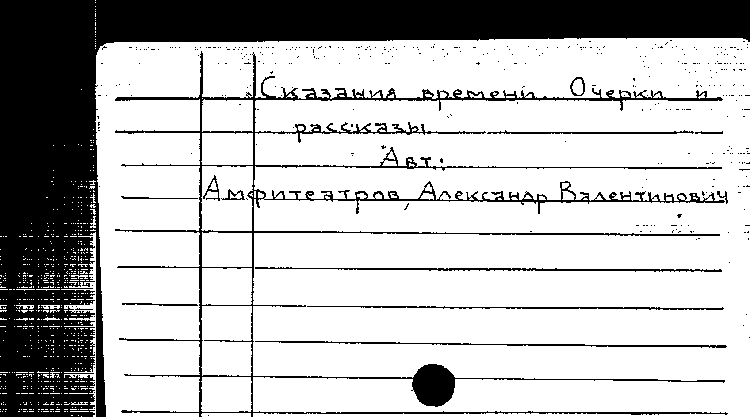 Сказания времени. Очерки и
рассказы.
Авт.:
Амфитеатров, Александр Валентинович